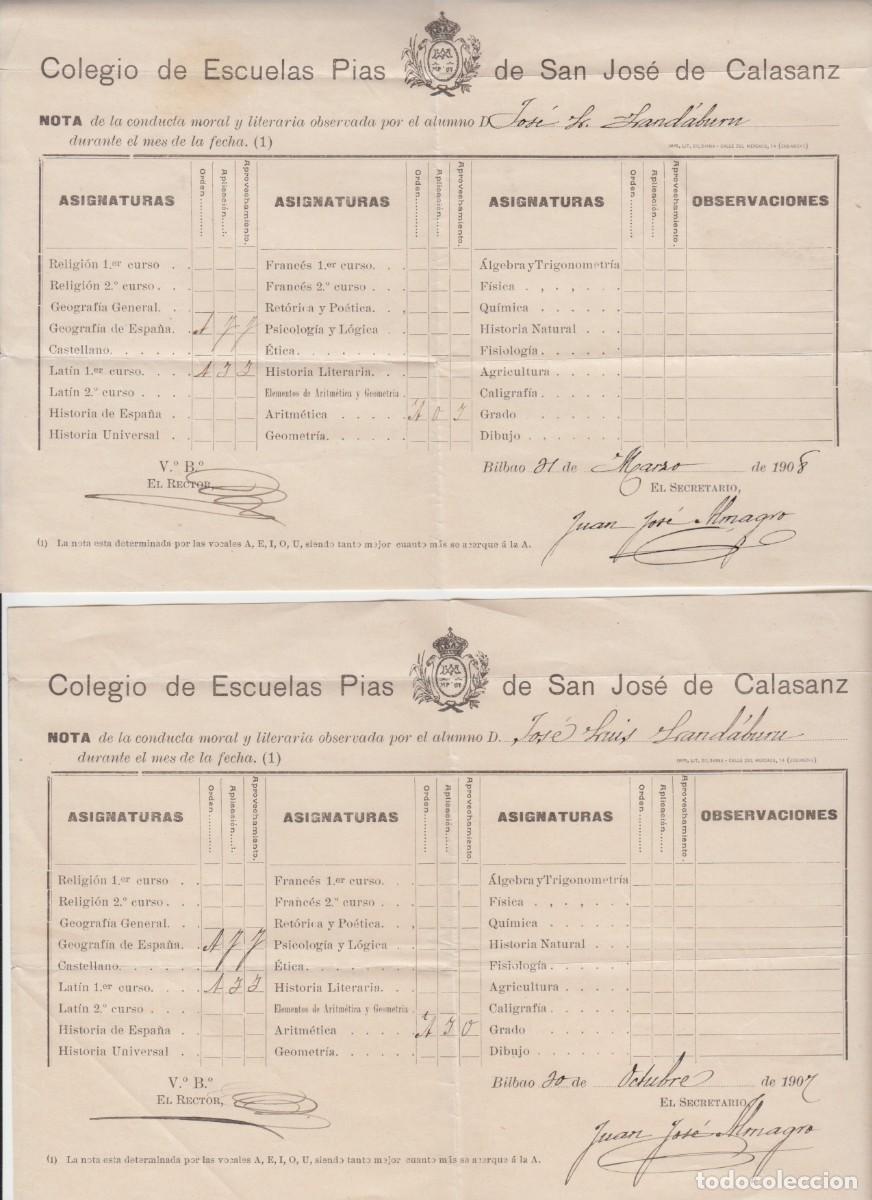 Colegio de Escuelas Pias de San José de Calasanz
NOTA de la conducta moral y literaria observada por el alumno D. José L. Landáburu
durante el mes de la fecha. (1)
ASIGNATURAS Orden Aplicación Aprovechamiento. ASIGNATURAS Orden Aplicación Aprovechamiento. ASIGNATURAS Orden Aplicación Aprovechamiento. OBSERVACIONES
Religión 1.er curso Francés 1.er curso. Álgebra y Trigonometría
Religión 2.º curso Francés 2.º curso Física
Geografía General. Retórica y Poética. Química
Geografía de España. A I I Psicología y Lógica Historia Natural
Castellano. Ética. Fisiología.
Latín 1.er curso. A I I Historia Literaria. Agricultura
Latín 2.º curso Elementos de Aritmética y Geometría Caligrafía.
Historia de España Aritmética A O I Grado
Historia Universal Geometría. Dibujo
V.º B.º Bilbao 31 de Marzo de 1908
EL RECTOR, EL SECRETARIO,
Juan José Almagro
(1) La nota esta determinada por las vocales A, E, I, O, U, siendo tanto mejor cuanto más se acerque á la A.
Colegio de Escuelas Pias de San José de Calasanz
NOTA de la conducta moral y literaria observada por el alumno D. José Luis Landáburu
durante el mes de la fecha. (1)
ASIGNATURAS Orden Aplicación Aprovechamiento. ASIGNATURAS Orden Aplicación Aprovechamiento. ASIGNATURAS Orden Aplicación Aprovechamiento. OBSERVACIONES
Religión 1.er curso Francés 1.er curso. Álgebra y Trigonometría
Religión 2.º curso Francés 2.º curso Física
Geografía General. Retórica y Poética. Química
Geografía de España. A I I Psicología y Lógica Historia Natural
Castellano. Ética. Fisiología.
Latín 1.er curso. A I I Historia Literaria. Agricultura
Latín 2.º curso Elementos de Aritmética y Geometría Caligrafía.
Historia de España Aritmética A I O Grado
Historia Universal Geometría. Dibujo
V.º B.º Bilbao 30 de Octubre de 1907
EL RECTOR, EL SECRETARIO,
Juan José Almagro
(1) La nota esta determinada por las vocales A, E, I, O, U, siendo tanto mejor cuanto más se acerque á la A.
todocoleccion